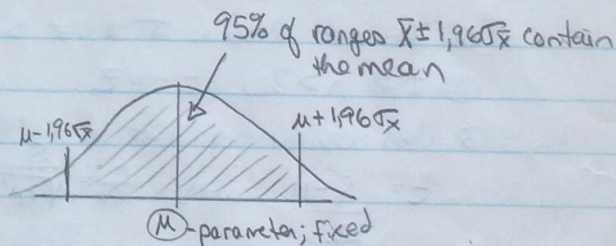 95% of ranges x̄ ± 1,96σx̄ contain
the mean
μ-1,96σx̄
μ+1,96σx̄
μ-parameter; fixed